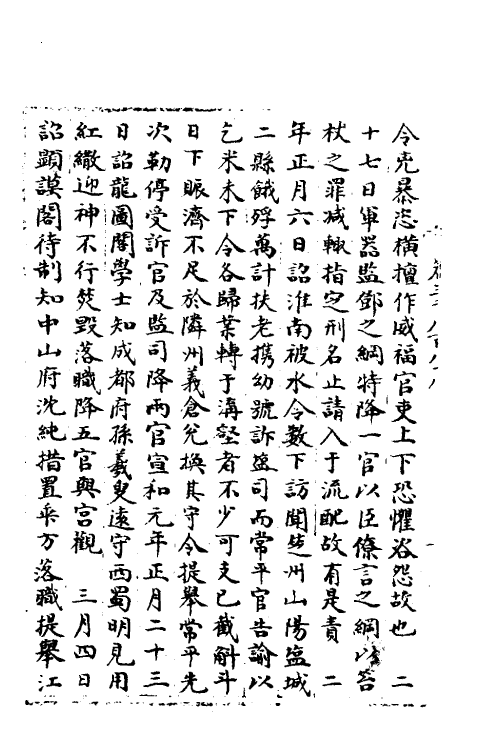 令兇暴恣橫擅作威福官吏上下恐懼咨怨故也　二
十七日軍器監鄧之綱特降一官以臣僚言之綱以笞
杖之罪減輒指定刑名止請入于流配故有是責　二
年正月六日詔淮南被水令數下訪聞楚州山陽鹽城
二縣餓殍萬計扶老攜幼號訴監司而常平官告諭以
乞米未下令各歸業轉于溝壑者不少可支已截斛斗
日下賑濟不足於隣州義倉兌換其守令提舉常平先
次勒停受訴官及監司降兩官宣和元年正月二十三
日詔龍圖閣學士知成都府孫羲叟遠守西蜀明見用
紅繖迎神不行焚毀落職降五官與宮觀　三月四日
詔顯謨閣待制知中山府沈純措置乖方落職提舉江